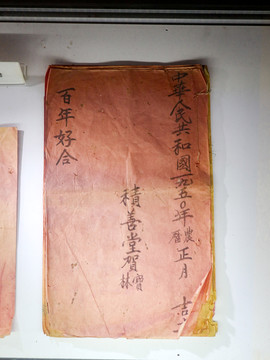 中華人民共和國一九五〇年農曆正月吉
積善堂賀
百年好合